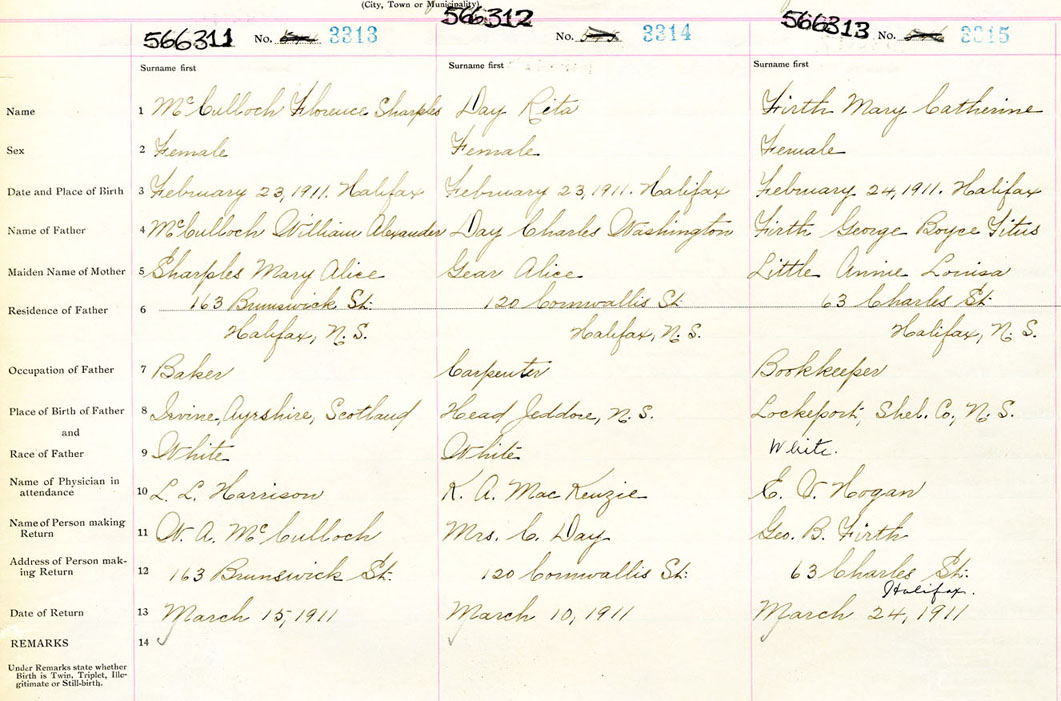 (City, Town or Municipality)
566311 No. 3313 566312 No. 3314 566313 No. 3315
Surname first Surname first Surname first
Name 1 McCulloch Florence Sharples Day Rita Firth Mary Catherine
Sex 2 Female Female Female
Date and Place of Birth 3 February 23, 1911. Halifax February 23, 1911. Halifax February 24, 1911. Halifax
Name of Father 4 McCulloch William Alexander Day Charles Washington Firth George Boyce Titus
Maiden Name of Mother 5 Sharples Mary Alice Gear Alice Little Annie Louisa
Residence of Father 6 163 Brunswick St. 120 Cornwallis St. 63 Charles St.
Halifax, N.S. Halifax, N.S. Halifax, N.S.
Occupation of Father 7 Baker Carpenter Bookkeeper
Place of Birth of Father 8 Irvine, Ayrshire, Scotland Head Jeddore, N.S. Lockeport, Shel. Co., N.S.
and
Race of Father 9 White White White.
Name of Physician in
attendance 10 L. L. Harrison K. A. MacKenzie E. V. Hogan
Name of Person making
Return 11 W. A. McCulloch Mrs. C. Day Geo. B. Firth
Address of Person mak-
ing Return 12 163 Brunswick St. 120 Cornwallis St. 63 Charles St.
Halifax.
Date of Return 13 March 15, 1911 March 10, 1911 March 24, 1911
REMARKS 14
Under Remarks state whether
Birth is Twin, Triplet, Ille-
gitimate or Still-birth.